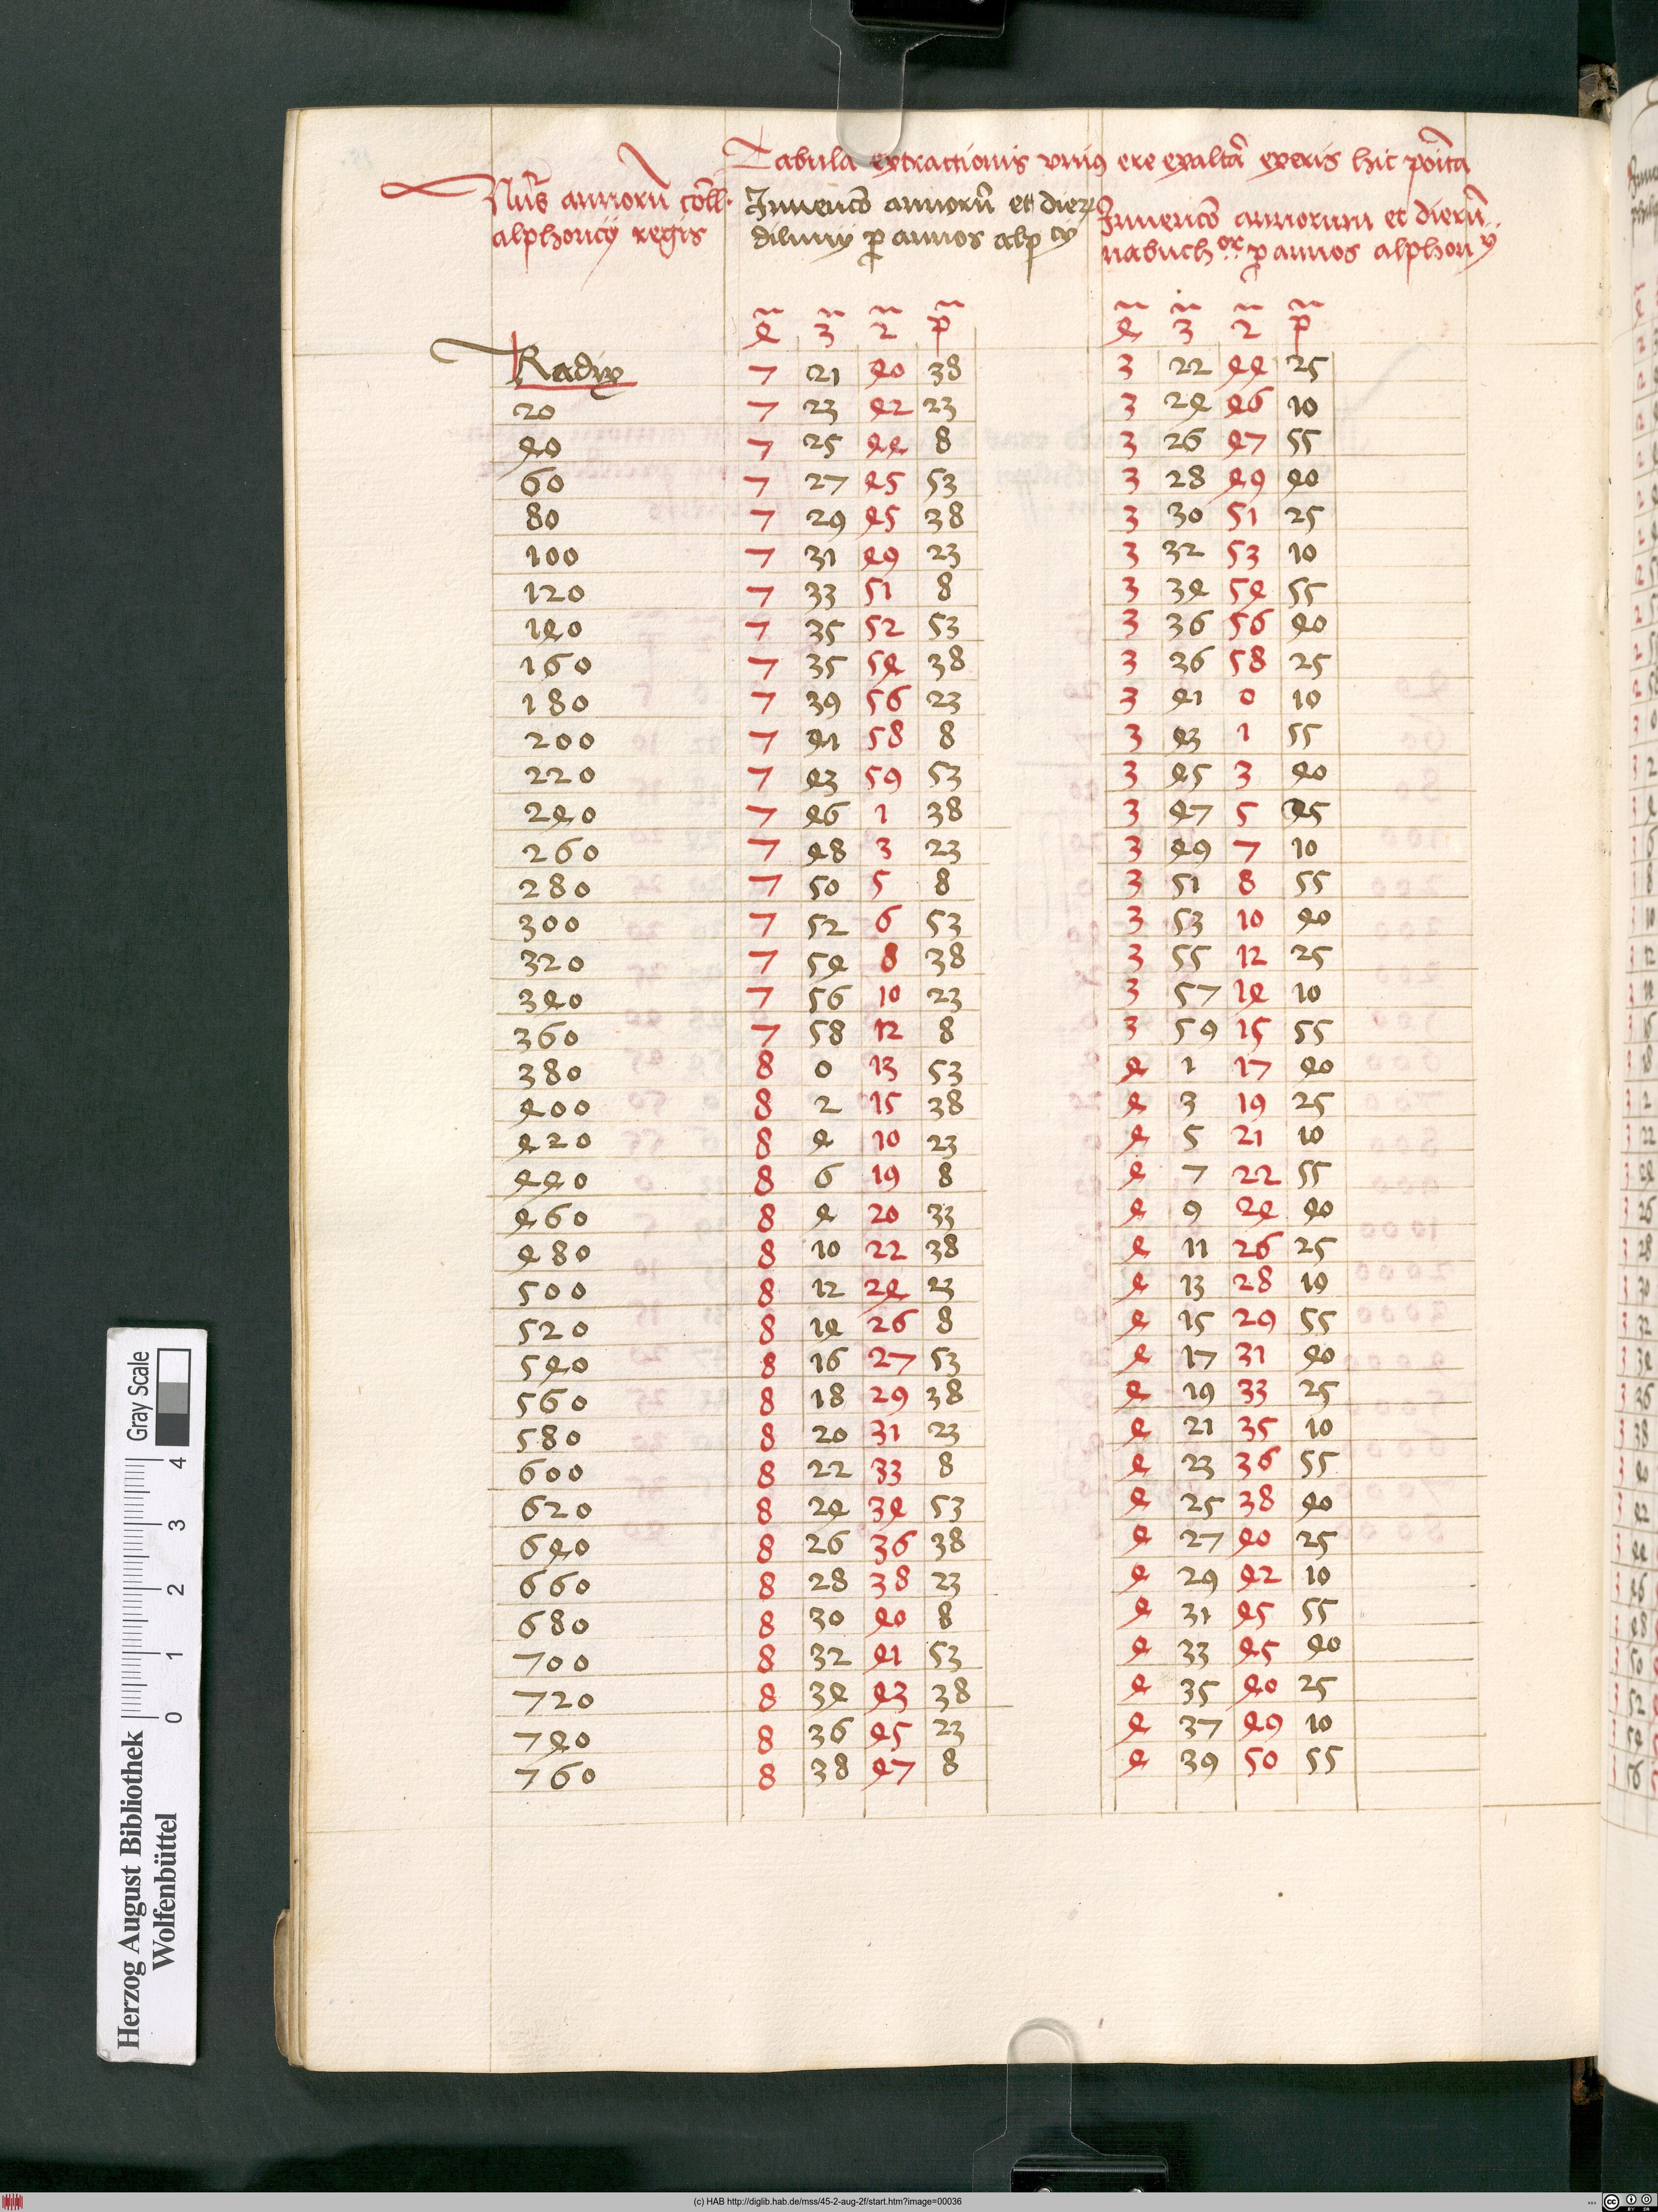 Tabula extractionis unius ere ex altã exeris hic põita
Nũs annorũ coll. alphoncij regis
Inuencõ annorũ et dierꝝ
diluuij p annos alp cij
Inuencõ annorum et dierũ
nabuch or p annos alphoncij
4 3 2 p 4 3 2 p
Radix 7 21 40 38 3 22 44 25
20 7 23 42 23 3 24 46 10
40 7 25 44 8 3 26 47 55
60 7 27 45 53 3 28 49 40
80 7 29 45 38 3 30 51 25
100 7 31 49 23 3 32 53 10
120 7 33 51 8 3 34 54 55
140 7 35 52 53 3 36 56 40
160 7 35 54 38 3 36 58 25
180 7 39 56 23 3 41 0 10
200 7 41 58 8 3 43 1 55
220 7 43 59 53 3 45 3 40
240 7 46 1 38 3 47 5 25
260 7 48 3 23 3 49 7 10
280 7 50 5 8 3 51 8 55
300 7 52 6 53 3 53 10 40
320 7 54 8 38 3 55 12 25
340 7 56 10 23 3 57 14 10
360 7 58 12 8 3 59 15 55
380 8 0 13 53 4 1 17 40
400 8 2 15 38 4 3 19 25
420 8 4 10 23 4 5 21 10
440 8 6 19 8 4 7 22 55
460 8 4 20 33 4 9 24 40
480 8 10 22 38 4 11 26 25
500 8 12 24 23 4 13 28 10
520 8 14 26 8 4 15 29 55
540 8 16 27 53 4 17 31 40
560 8 18 29 38 4 19 33 25
580 8 20 31 23 4 21 35 10
600 8 22 33 8 4 23 36 55
620 8 24 34 53 4 25 38 40
640 8 26 36 38 4 27 40 25
660 8 28 38 23 4 29 42 10
680 8 30 40 8 4 31 45 55
700 8 32 41 53 4 33 45 40
720 8 34 43 38 4 35 40 25
740 8 36 45 23 4 37 49 10
760 8 38 47 8 4 39 50 55
Herzog August Bibliothek
Wolfenbüttel
0 1 2 3 4
Gray Scale
(c) HAB http://diglib.hab.de/mss/45-2-aug-2f/start.htm?image=00036